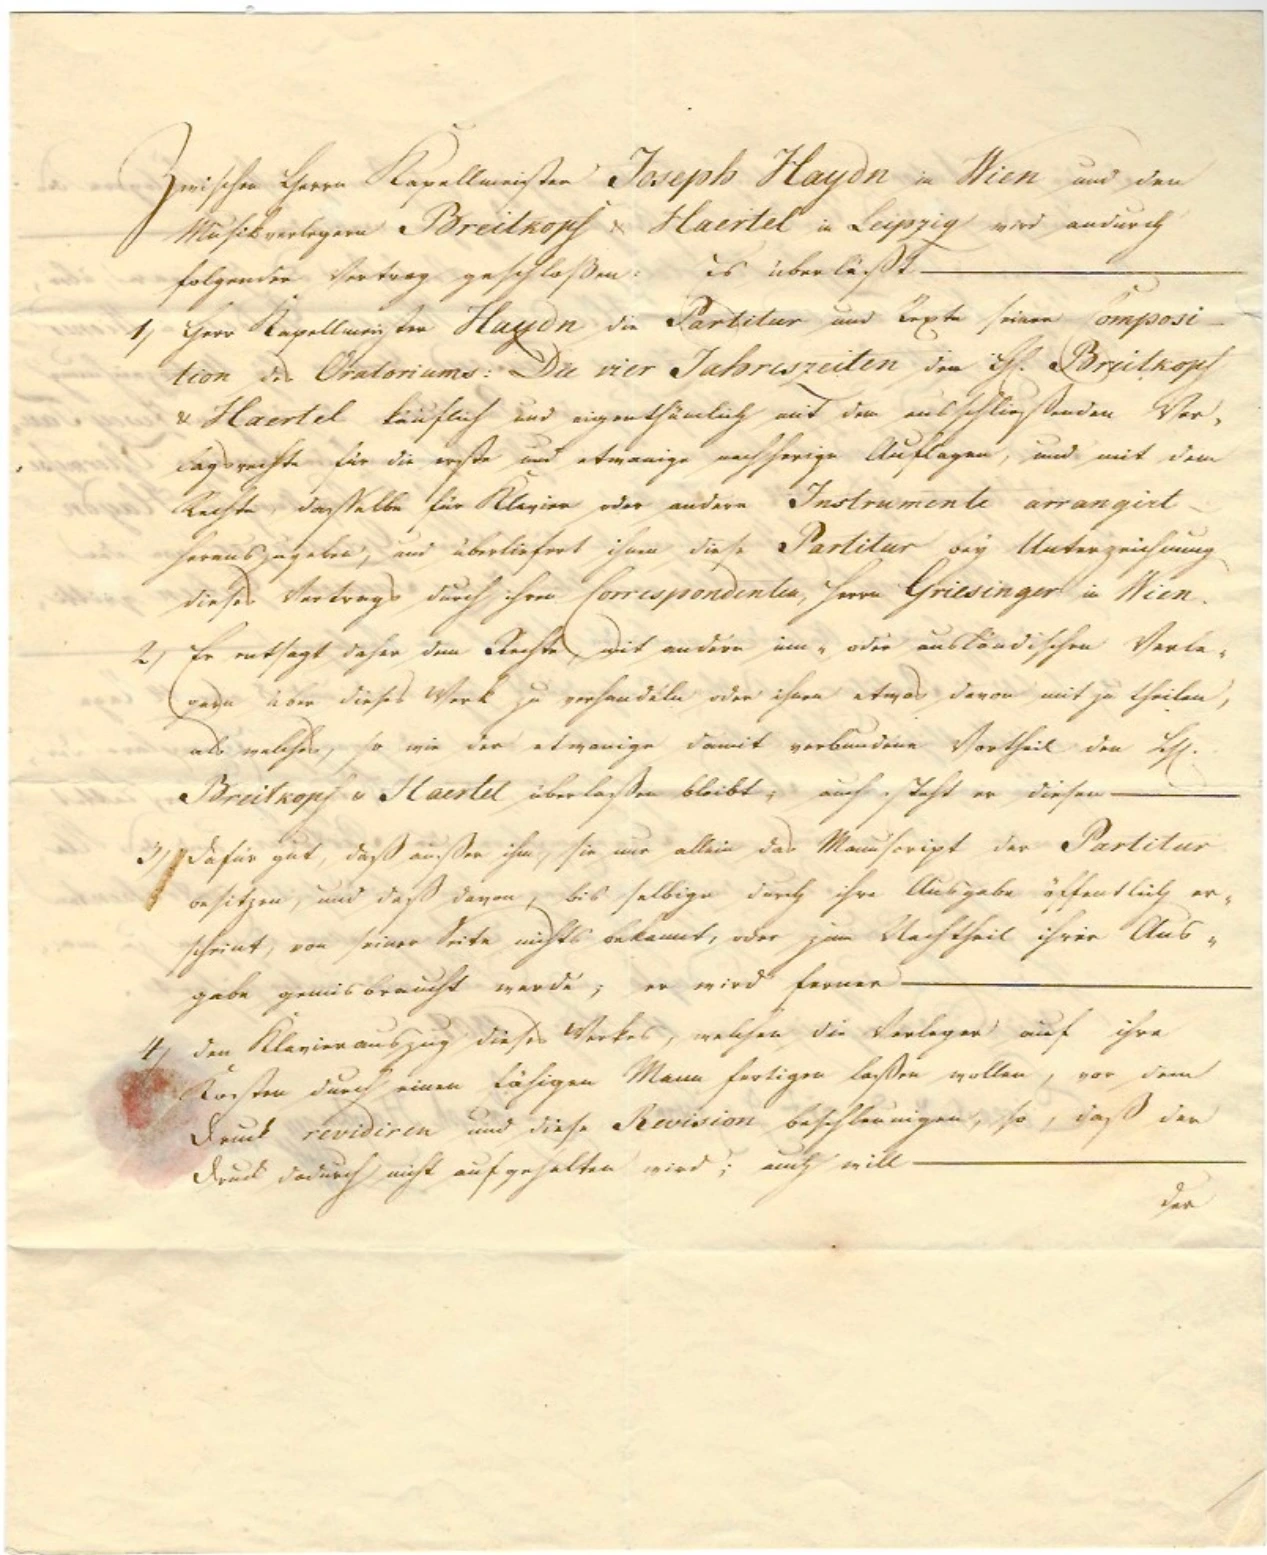 Zwischen Herrn Kapellmeister Joseph Haydn in Wien und den
Musikverlegern Breitkopf & Haertel in Leipzig wird andurch
folgender Vertrag geschloßen: Es überläßt
1) Herr Kapellmeister Haydn die Partitur und Texte seiner Composi-
tion des Oratoriums: Die vier Jahreszeiten den HH. Breitkopf
& Haertel käuflich und eigenthümlich mit dem ausschließenden Ver-
lagsrechte für die erste und etwanige nachherige Auflagen, und mit dem
Rechte, dasselbe für Klavier oder andere Instrumente arrangirt
herauszugeben, und überliefert ihnen diese Partitur bey Unterzeichnung
dieses Vertrags durch ihren Correspondenten, Herrn Griesinger in Wien.
2) Er entsagt daher dem Rechte, mit andern inn- oder ausländischen Verle-
gern über dieses Werk zu verhandeln oder ihnen etwas davon mitzutheilen,
als welches, so wie der etwanige damit verbundene Vortheil den HH.
Breitkopf u Haertel überlaßen bleibt; auch steht er diesen
3) dafür gut, daß außer ihm, sie nur allein das Manuscript der Partitur
besitzen, und daß davon, bis selbige durch ihre Ausgabe öffentlich er-
scheint, von seiner Seite nichts bekannt, oder zum Nachtheil ihrer Aus-
gabe gemisbraucht werde; er wird ferner
4) den Klavierauszug dieses Werkes, welchen die Verleger auf ihre
Kosten durch einen fähigen Mann fertigen laßen wollen, vor dem
Druck revidiren und diese Revision beschleunigen, so, daß der
Druck dadurch nicht aufgehalten wird; auch will
der